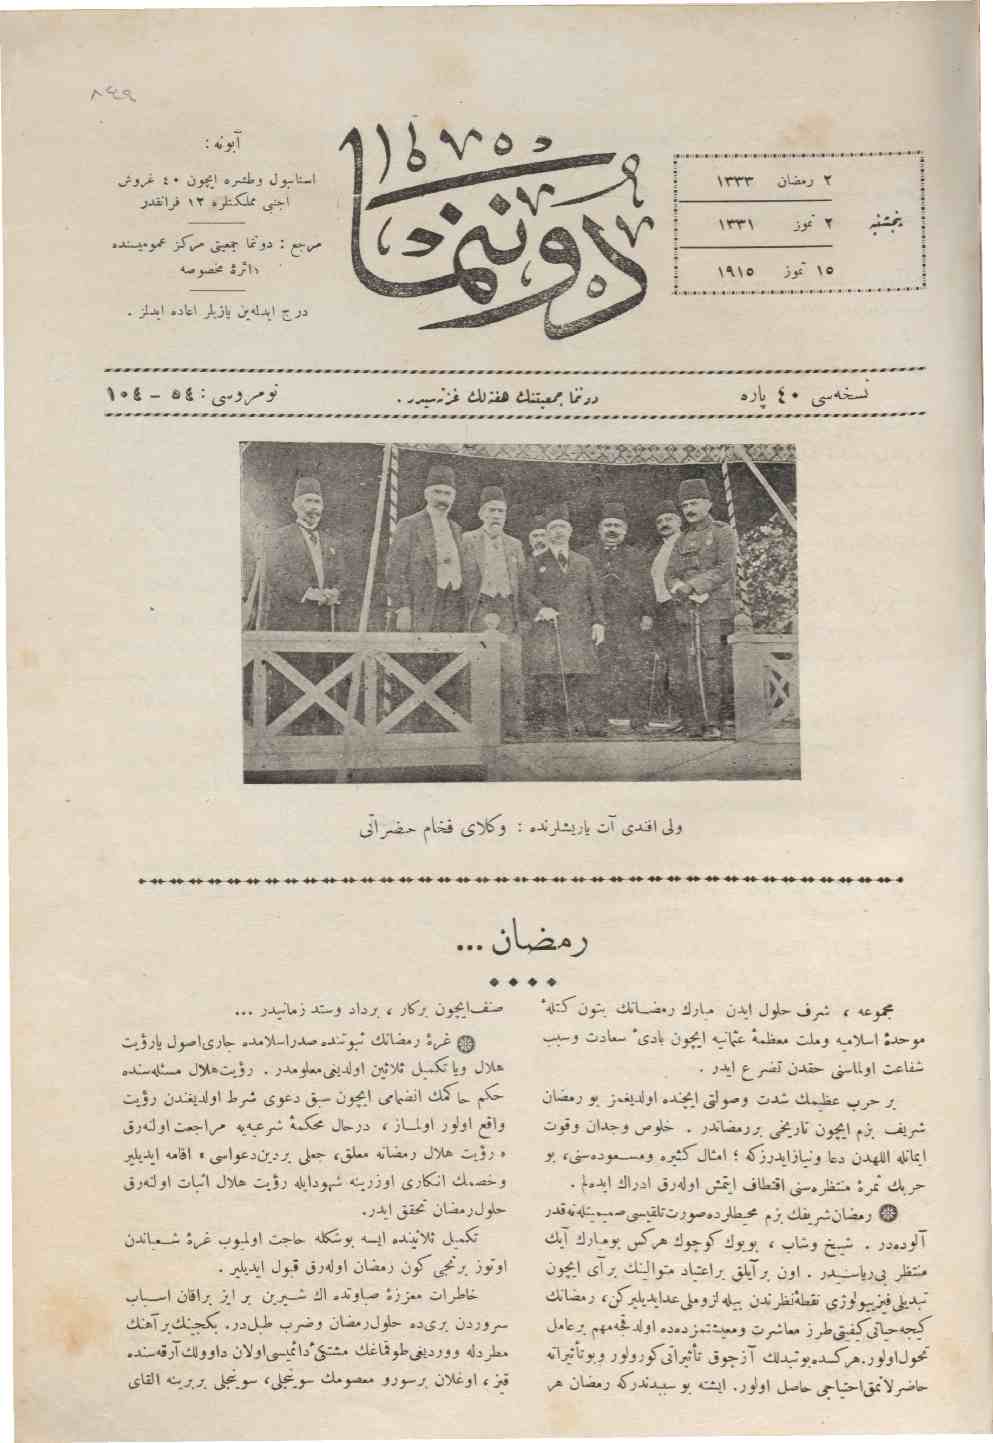 ٨٤٩
آبونه :
استانبول وطشره ايچون ٤٠ غروش
اجنبی مملکتلره ١٢ فرانقدر
مرجع : دوننما جمعيتی مرکز عموميسنده
دائرۀ مخصوصه
درج ايدلمه‌ين يازيلر اعاده ايدلمز .
دوننما
٢ رمضان ١٣٣٣
٢ تموز ١٣٣١
١٥ تموز ١٩١٥
پنجشنبه
نسخه‌سی ٤٠ پاره
دوننما جمعيتنك هفته‌لك غزته‌سيدر .
نومروسی : ٥٤ – ١٠٤
ولی افندی آت ياريشلرنده : وکلای فخام حضراتی
رمضان ...
مجموعه ، شرف حلول ايدن مبارك رمضانك بتون کتلۀ
موحدۀ اسلاميه وملت معظمۀ عثمانيه ايچون بادیٔ سعادت وسبب
شفاعت اولماسنی حقدن تضرع ايدر .
بر حرب عظيمك شدت وصولتی ايچنده اولديغمز بو رمضان
شريف بزم ايچون تاريخی بررمضاندر . خلوص وجدان وقوت
ايمانله اللهدن دعا ونيازايدرزکه ؛ امثال کثيره ومسعوده‌سنی، بو
حربك ثمرۀ منتظره‌سنی اقتطاف ايتمش اوله‌رق ادراك ايده‌لم .
رمضان شريفك بزم محيطلرده صورت تلقيسی صميميتله نه‌قدر
آلوده‌در . شيخ وشاب ، بويوك کوچوك هرکس بومبارك آيك
منتظر بی‌رياسيدر . اون بر آيلق براعتياد متوالينك بر آی ايچون
تبديلی فيزيولوژی نقطۀ نظرندن بيله لزوملی عدايديليرکن، رمضانك
کيجه حياتی کيفيتی طرز معاشرت ومعيشتمزده‌ده اولدقجه مهم برعامل
تحول اولور. هرکسده بوتبدلك آزچوق تأثيراتی کورولور و بوتأثيراته
حاضرلانمق احتياجی حاصل اولور. ايشته بو سببدندرکه رمضان هر
صنف ايچون برکار ، برداد وستد زمانيدر ...
غرۀ رمضانك ثبوتنده صدراسلامده جاری اصول يارؤيت
هلال ويا تکميل ثلاثين اولديغی معلومدر . رؤيت هلال مسئله‌سنده
حکم حاکمك انضمامی ايچون سبق دعوی شرط اولديغندن رؤيت
واقع اولور اولماز ، درحال محکمۀ شرعيه‌يه مراجعت اولنه‌رق
« رؤيت هلال رمضانه معلق، جعلی بردين دعواسی » اقامه ايديلير
وخصمك انکاری اوزرينه شهودايله رؤيت هلال اثبات اولنه‌رق
حلول رمضان تحقق ايدر.
تکميل ثلاثينده ايسه بوشکله حاجت اولميوب غرۀ شعباندن
اوتوز برنجی کون رمضان اوله‌رق قبول ايديلير .
خاطرات معززۀ صباوتده اك شيرين بر ايز براقان اسباب
سروردن بری‌ده حلول رمضان وضرب طبلدر. بکجينك بر آهنك
مطردله ووردیغی طوقماغك مشتکیٔ دائميسی اولان داوولك آرقه‌سنده
قيز ، اوغلان برسورو معصومك سوينجلی، سوينجلی بربرينه القای